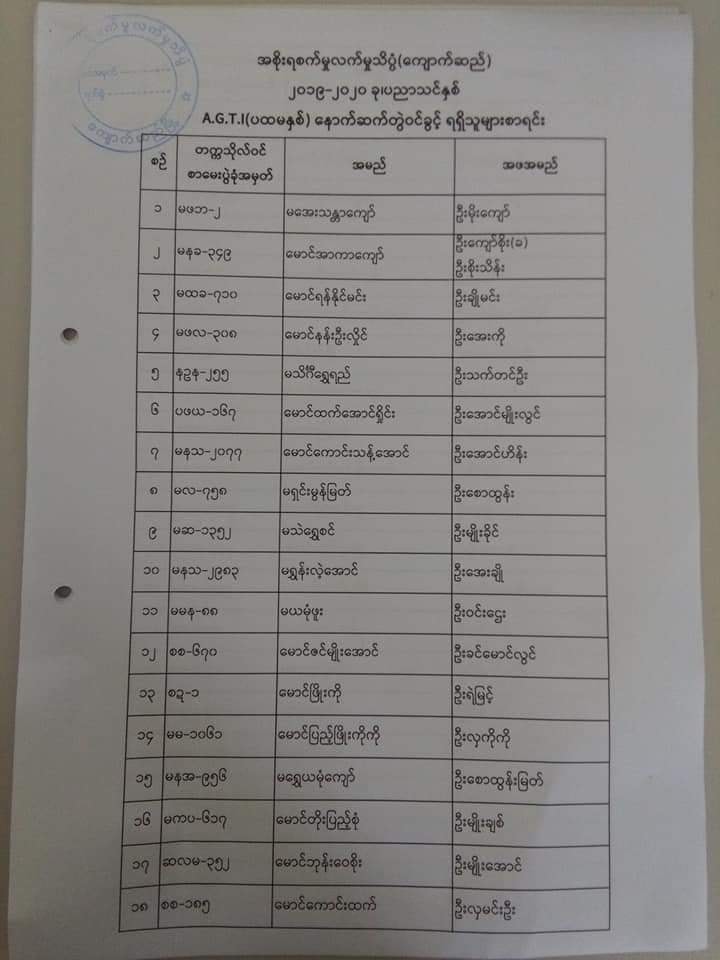 အစိုးရစက်မှုလက်မှုသိပ္ပံ(ကျောက်ဆည်)
၂၀၁၉-၂၀၂၀ ခု၊ပညာသင်နှစ်
A.G.T.I(ပထမနှစ်) နောက်ဆက်တွဲဝင်ခွင့် ရရှိသူများစာရင်း
စဉ် တက္ကသိုလ်ဝင် စာမေးပွဲခုံအမှတ် အမည် အဖအမည်
၁ မဖဘ-၂ မအေးသန္တာကျော် ဦးမိုးကျော်
၂ မနခ-၃၄၉ မောင်အာကာကျော် ဦးကျော်စိုး(ခ) ဦးစိုးသိန်း
၃ မထခ-၇၁၀ မောင်ရန်နိုင်မင်း ဦးချိုမင်း
၄ မဖလ-၃၀၈ မောင်နန်းဦးလှိုင် ဦးအေးကို
၅ နဥန-၂၅၅ မသိင်္ဂီရွှေရည် ဦးသက်တင်ဦး
၆ ပဖယ-၁၆၇ မောင်ထက်အောင်ရှိုင်း ဦးအောင်မျိုးလွင်
၇ မနသ-၂၀၇၇ မောင်ကောင်းသန့်အောင် ဦးအောင်ဟိန်း
၈ မလ-၇၅၈ မရှင်းမွန်မြတ် ဦးစောထွန်း
၉ မဆ-၁၃၅၂ မသဲရွှေစင် ဦးမျိုးခိုင်
၁၀ မနသ-၂၉၈၃ မရွှန်းလဲ့အောင် ဦးအေးချို
၁၁ မမန-၈၈ မယမုံဖူး ဦးဝင်းဌေး
၁၂ စစ-၆၇၀ မောင်ဇင်မျိုးအောင် ဦးခင်မောင်လွင်
၁၃ စဍ-၁ မောင်ဖြိုးကို ဦးရဲမြင့်
၁၄ မမ-၁၀၆၁ မောင်ပြည့်ဖြိုးကိုကို ဦးလှကိုကို
၁၅ မနအ-၉၅၆ မရွှေယမုံကျော် ဦးစောထွန်းမြတ်
၁၆ မကပ-၆၁၇ မောင်တိုးပြည့်စုံ ဦးမျိုးချစ်
၁၇ ဆလမ-၃၅၂ မောင်ဘုန်းဝေစိုး ဦးမျိုးအောင်
၁၈ စစ-၁၈၅ မောင်ကောင်းထက် ဦးလှမင်းဦး